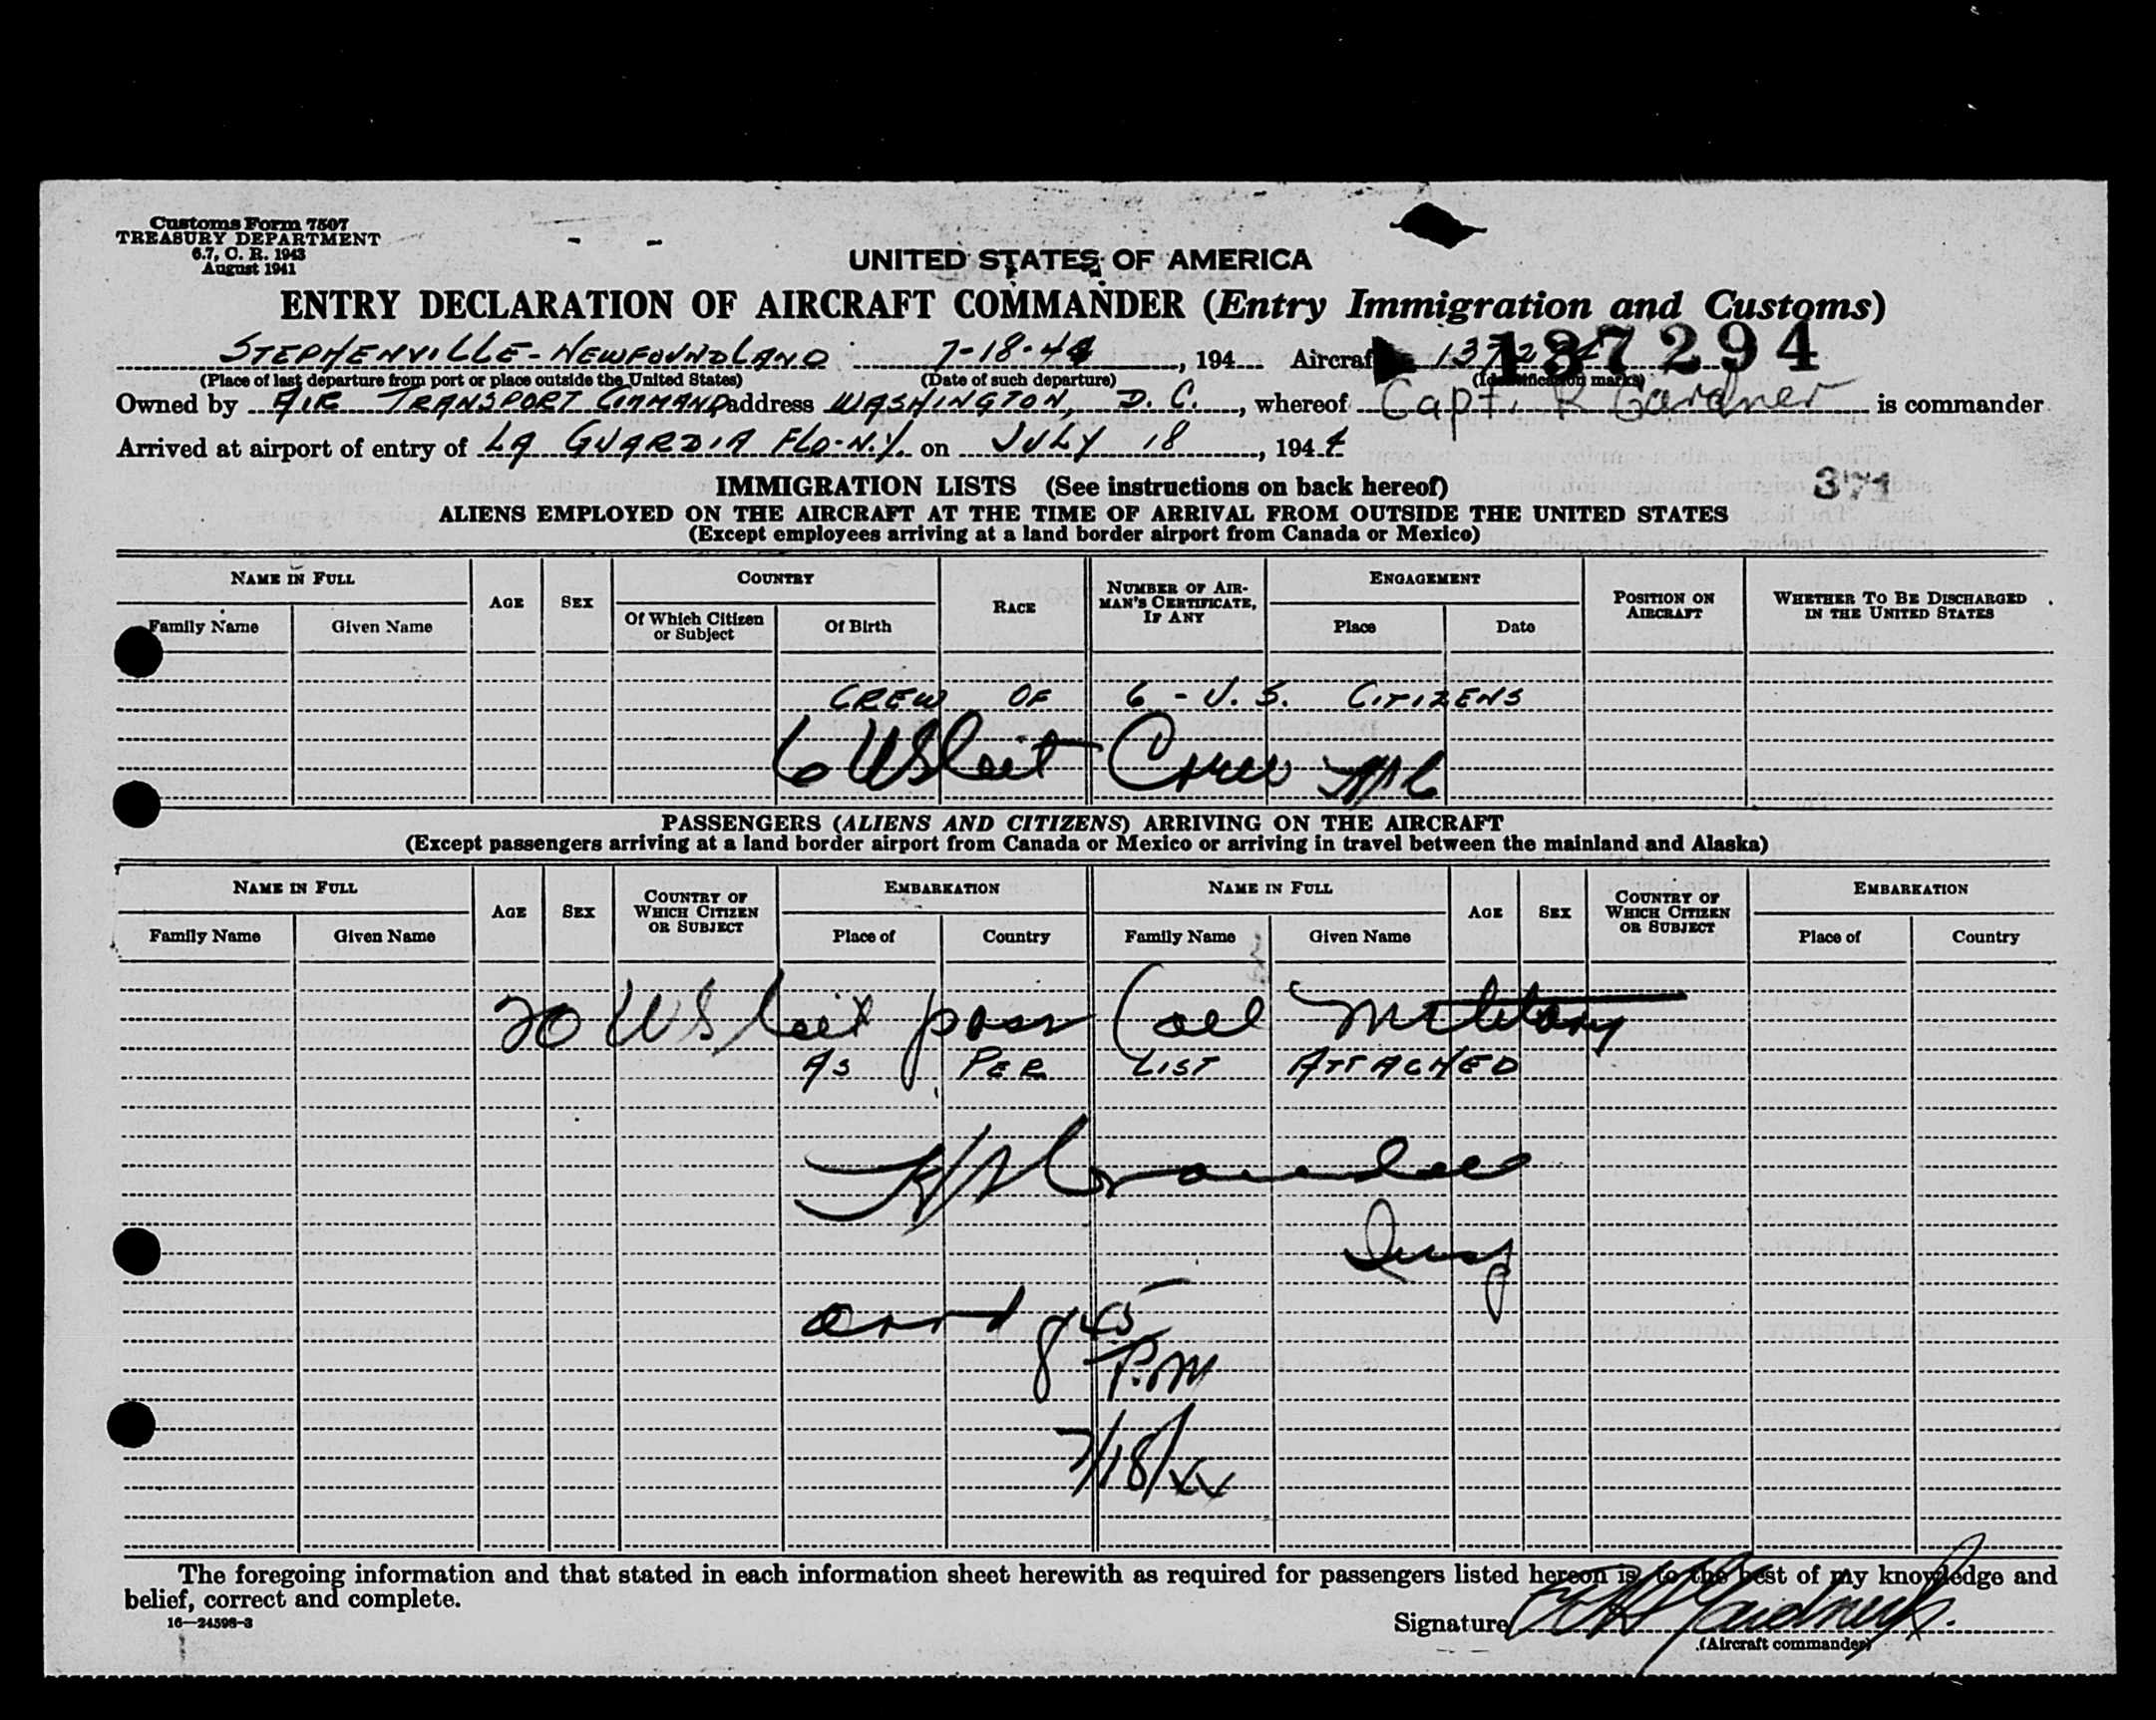 Customs Form 7507
TREASURY DEPARTMENT
6.7, C. R. 1943
August 1941
UNITED STATES OF AMERICA
ENTRY DECLARATION OF AIRCRAFT COMMANDER (Entry Immigration and Customs)
STEPHENVILLE - NEWFOUNDLAND 7-18-44, 194 Aircraft 137294
(Place of last departure from port or place outside the United States) (Date of such departure) (Identification marks)
Owned by AIR TRANSPORT COMMAND address WASHINGTON, D. C., whereof Capt. R Gardner is commander
Arrived at airport of entry of LA GUARDIA FLD-N.Y. on JULY 18, 1944
371
IMMIGRATION LISTS (See instructions on back hereof)
ALIENS EMPLOYED ON THE AIRCRAFT AT THE TIME OF ARRIVAL FROM OUTSIDE THE UNITED STATES
(Except employees arriving at a land border airport from Canada or Mexico)
NAME IN FULL AGE SEX COUNTRY RACE NUMBER OF AIRMAN'S CERTIFICATE, IF ANY ENGAGEMENT POSITION ON AIRCRAFT WHETHER TO BE DISCHARGED IN THE UNITED STATES
Family Name Given Name Of Which Citizen or Subject Of Birth Place Date
CREW OF 6 - U. S. CITIZENS
6 US Cit Crew
PASSENGERS (ALIENS AND CITIZENS) ARRIVING ON THE AIRCRAFT
(Except passengers arriving at a land border airport from Canada or Mexico or arriving in travel between the mainland and Alaska)
NAME IN FULL AGE SEX COUNTRY OF WHICH CITIZEN OR SUBJECT EMBARKATION NAME IN FULL AGE SEX COUNTRY OF WHICH CITIZEN OR SUBJECT EMBARKATION
Family Name Given Name Place of Country Family Name Given Name Place of Country
20 US Cit pass (all Military
AS PER LIST ATTACHED
Insp
arrd 8 45 P.M
7/18/44
The foregoing information and that stated in each information sheet herewith as required for passengers listed hereon is, to the best of my knowledge and
belief, correct and complete.
16—24598-3
Signature
(Aircraft commander)